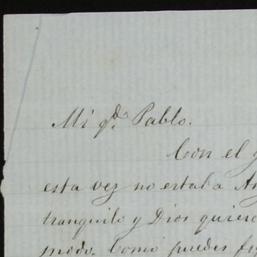 Mi qdo. Pablo.
Con el
esta vez no estaba
tranquilo y Dios quiera
modo. Como puedes